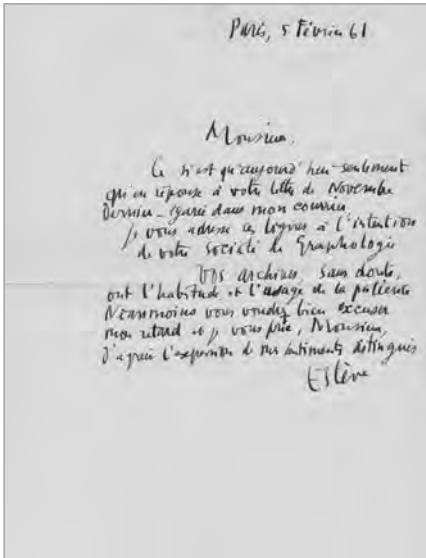 Paris, 5 Février 61
Monsieur,
Ce n'est qu'aujourd'hui seulement
qu'en réponse à votre lettre de Novembre
dernier - égarée dans mon courrier
je vous adresse ces lignes à l'intention
de votre société de Graphologie
Vos archives, sans doute,
ont l'habitude et l'usage de la patience
Néanmoins vous voudrez bien excuser
mon retard et je vous prie, Monsieur,
d'agréer l'expression de mes sentiments distingués
Estève